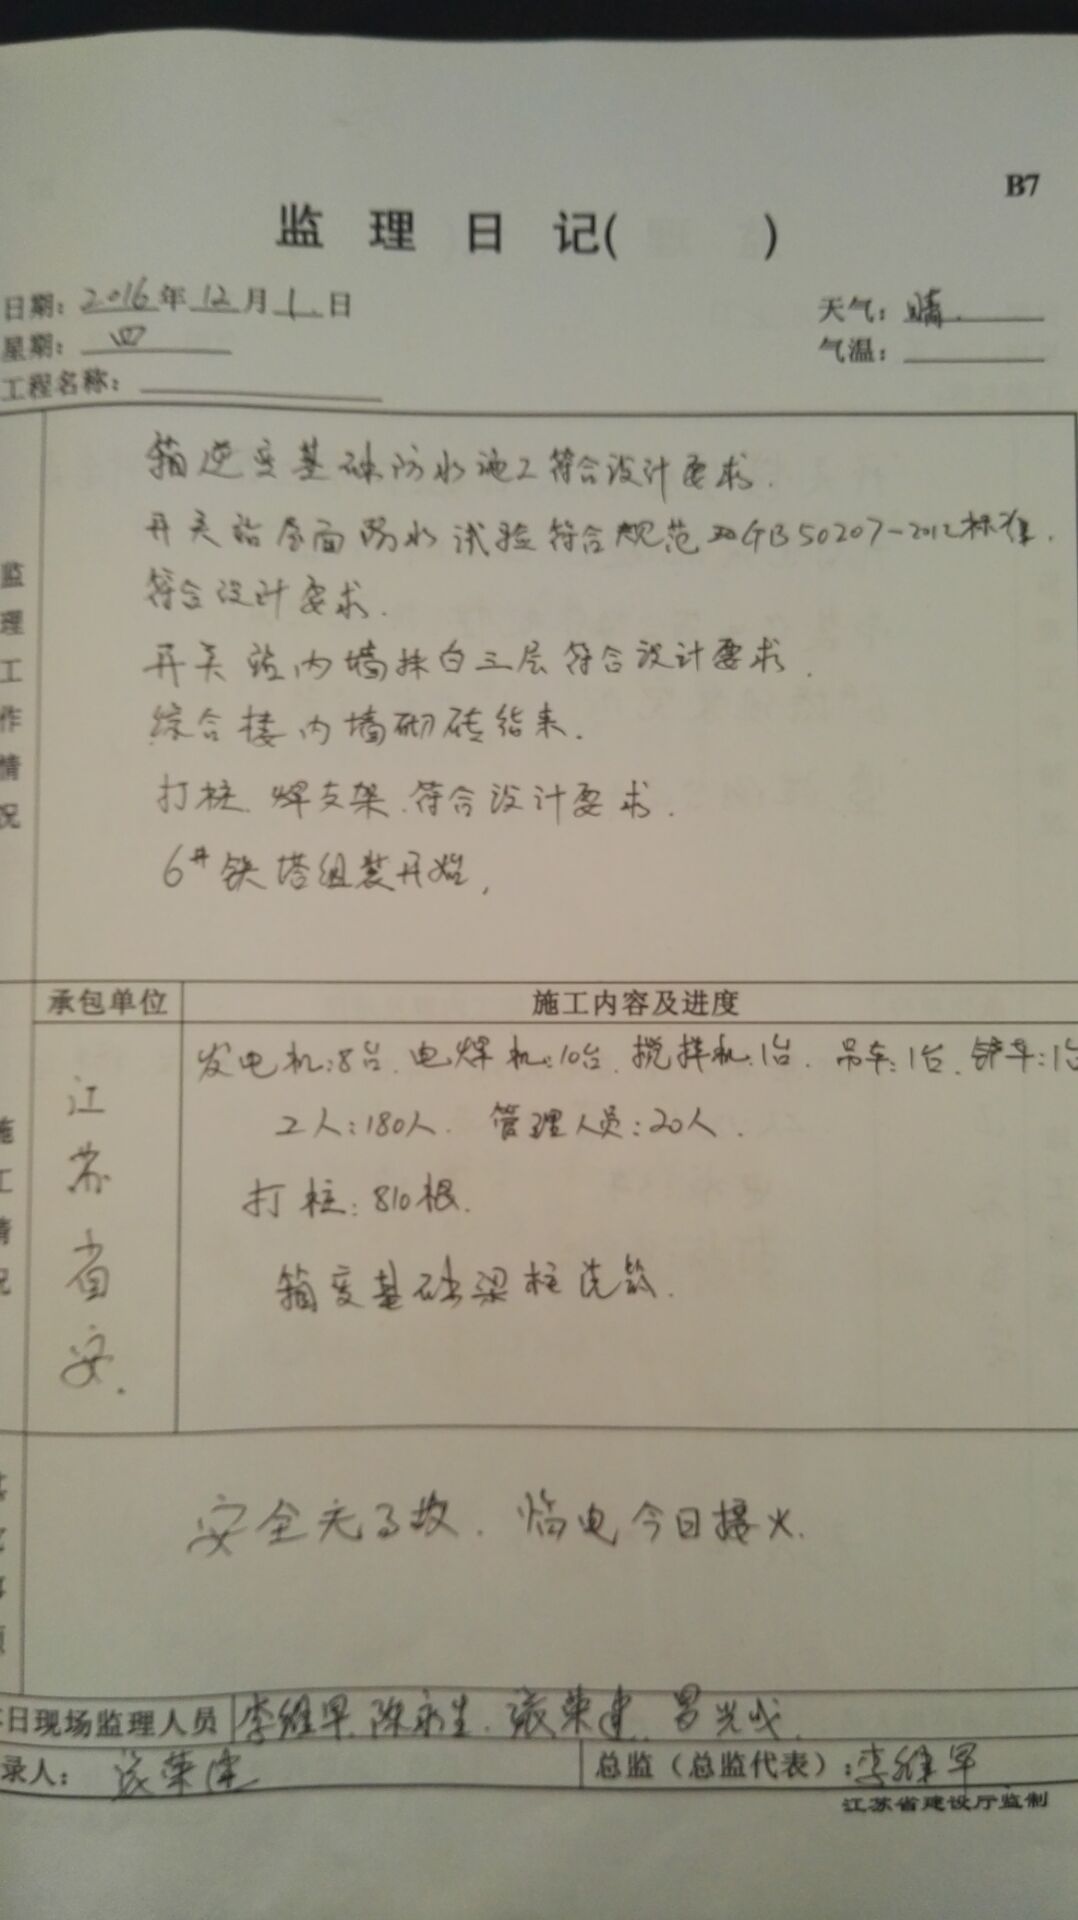 B7
监 理 日 记( )
日期：2016年12月1日
天气：晴.
星期：四
气温：
工程名称：
监理工作情况
箱逆变基础防水施工符合设计要求.
开关站屋面防水试验符合规范 GB50207-2012标准.
符合设计要求.
开关站内墙抹白三层符合设计要求.
综合楼内墙砌砖结束.
打桩.焊支架.符合设计要求.
6#铁塔组装开始,
承包单位
施工内容及进度
施工情况
江苏省安.
发电机:8台.电焊机:10台.搅拌机:1台.吊车:1台.铲车:1台
工人:180人. 管理人员:20人.
打桩:810根.
箱变基础梁柱浇筑.
安全无事故.临电今日接火.
日现场监理人员 李继军.陈永生.张荣建.
录人： 张荣建
总监（总监代表）:李继军
江苏省建设厅监制